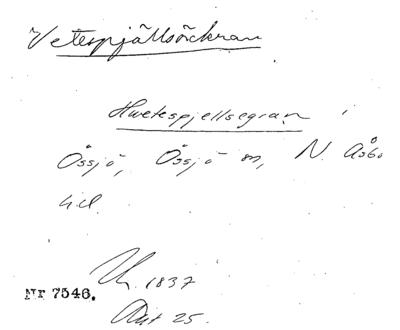 Vetespjällsåckran
Hwetespjellsegran
Össjö, Össjö m, N. Åsbo
hd
Nr 7546.
1837
Akt 25.